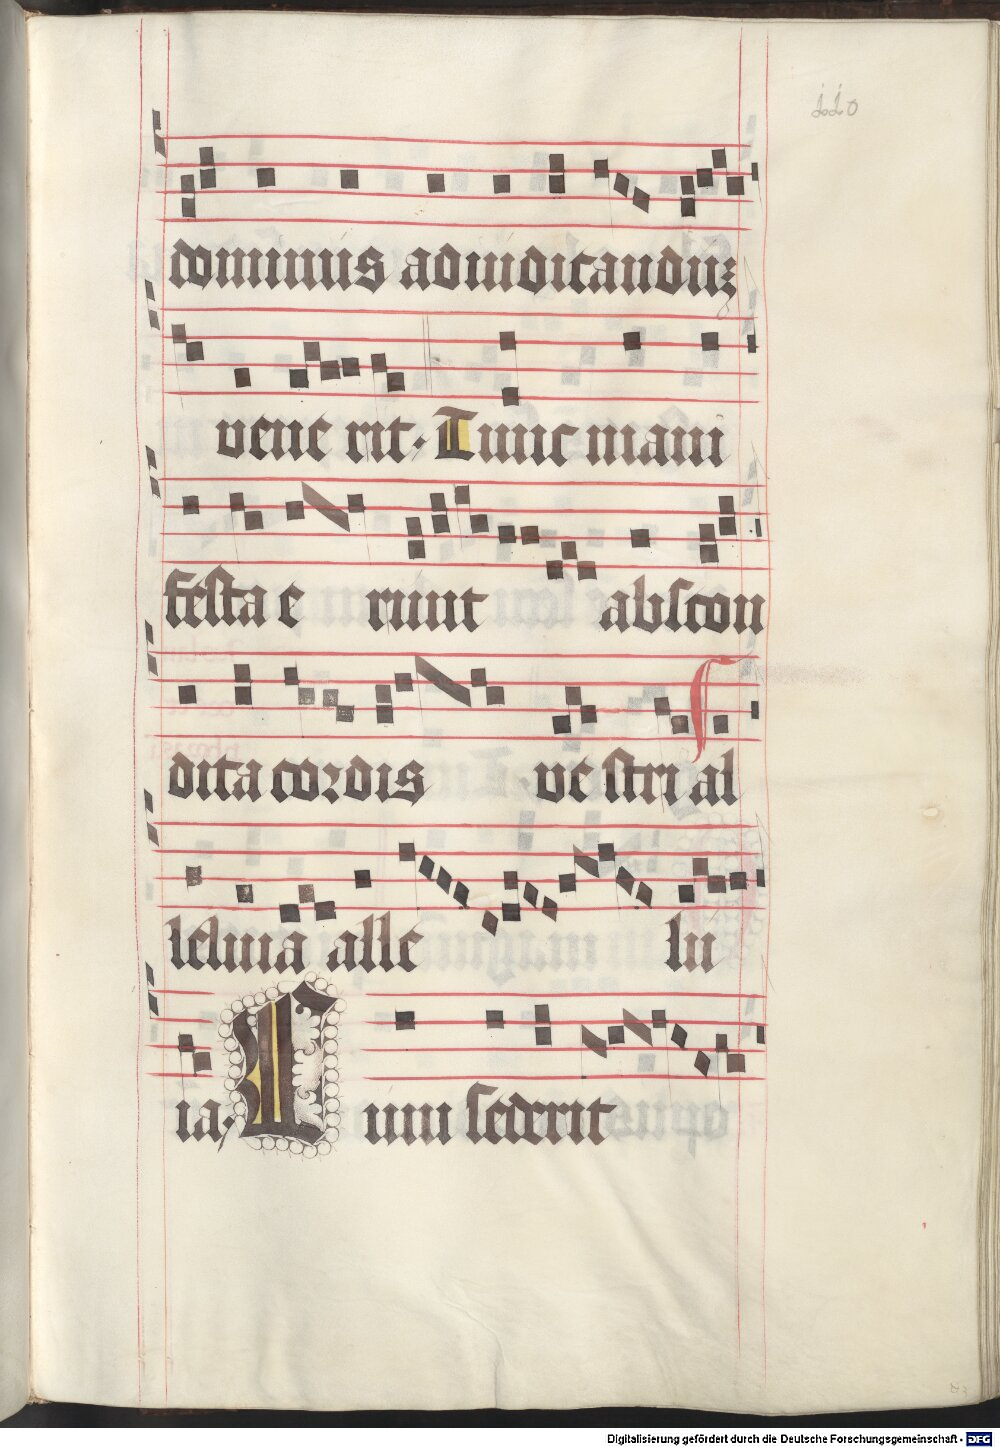 110
dominus adiudicanduz
vene rit· Tunc mani
festa e runt abscon
dita cordis ve stri al
leluia alle lu
ia· Cum sederit
Digitalisierung gefördert durch die Deutsche Forschungsgemeinschaft - DFG